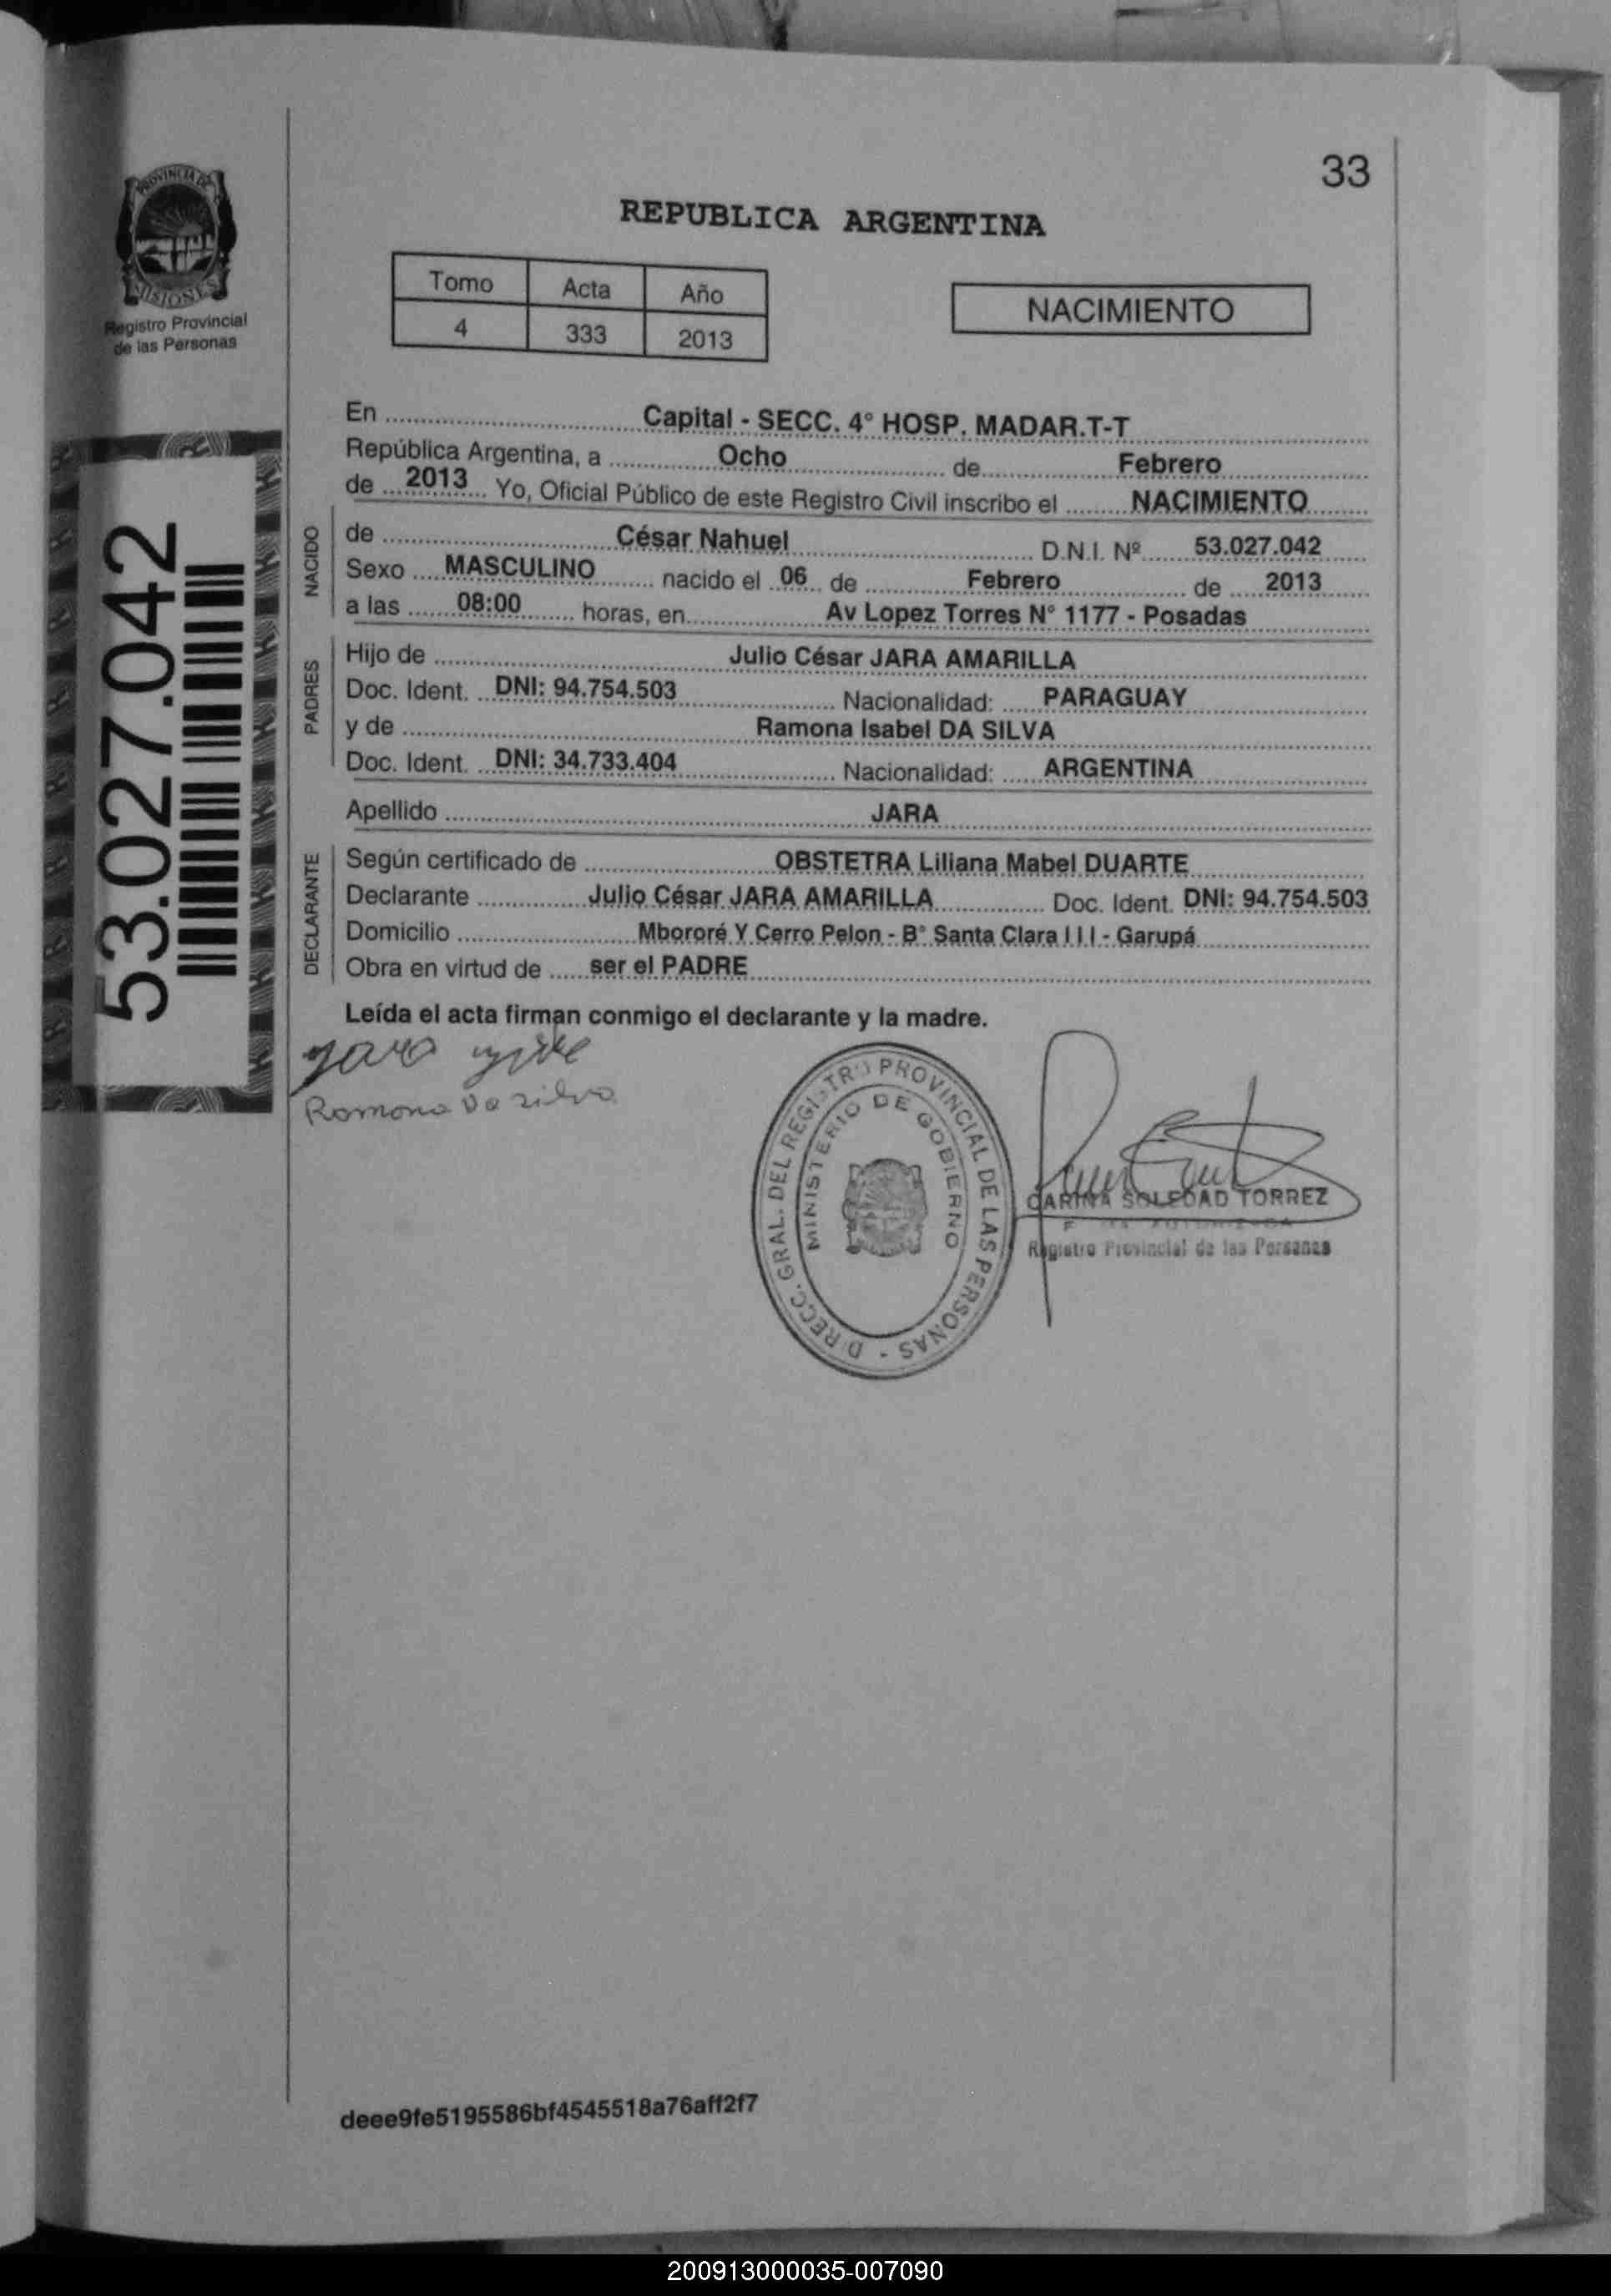 33
PROVINCIA DE
MISIONES
Registro Provincial
de las Personas
REPUBLICA ARGENTINA
Tomo Acta Año
4 333 2013
NACIMIENTO
53.027.042
En Capital - SECC. 4° HOSP. MADAR.T-T
República Argentina, a Ocho de Febrero
de 2013 Yo, Oficial Público de este Registro Civil inscribo el NACIMIENTO
NACIDO
de César Nahuel D.N.I. Nº 53.027.042
Sexo MASCULINO nacido el 06 de Febrero de 2013
a las 08:00 horas, en Av Lopez Torres N° 1177 - Posadas
PADRES
Hijo de Julio César JARA AMARILLA
Doc. Ident. DNI: 94.754.503 Nacionalidad: PARAGUAY
y de Ramona Isabel DA SILVA
Doc. Ident. DNI: 34.733.404 Nacionalidad: ARGENTINA
Apellido JARA
DECLARANTE
Según certificado de OBSTETRA Liliana Mabel DUARTE
Declarante Julio César JARA AMARILLA Doc. Ident. DNI: 94.754.503
Domicilio Mbororé Y Cerro Pelon - B° Santa Clara I I I - Garupá
Obra en virtud de ser el PADRE
Leída el acta firman conmigo el declarante y la madre.
Jara
Ramona Da silva
DIRECC. GRAL. DEL REGISTRO PROVINCIAL DE LAS PERSONAS -
MINISTERIO DE GOBIERNO
CARINA SOLEDAD TORREZ
Registro Provincial de las Personas
deee9fe5195586bf4545518a76aff2f7
200913000035-007090